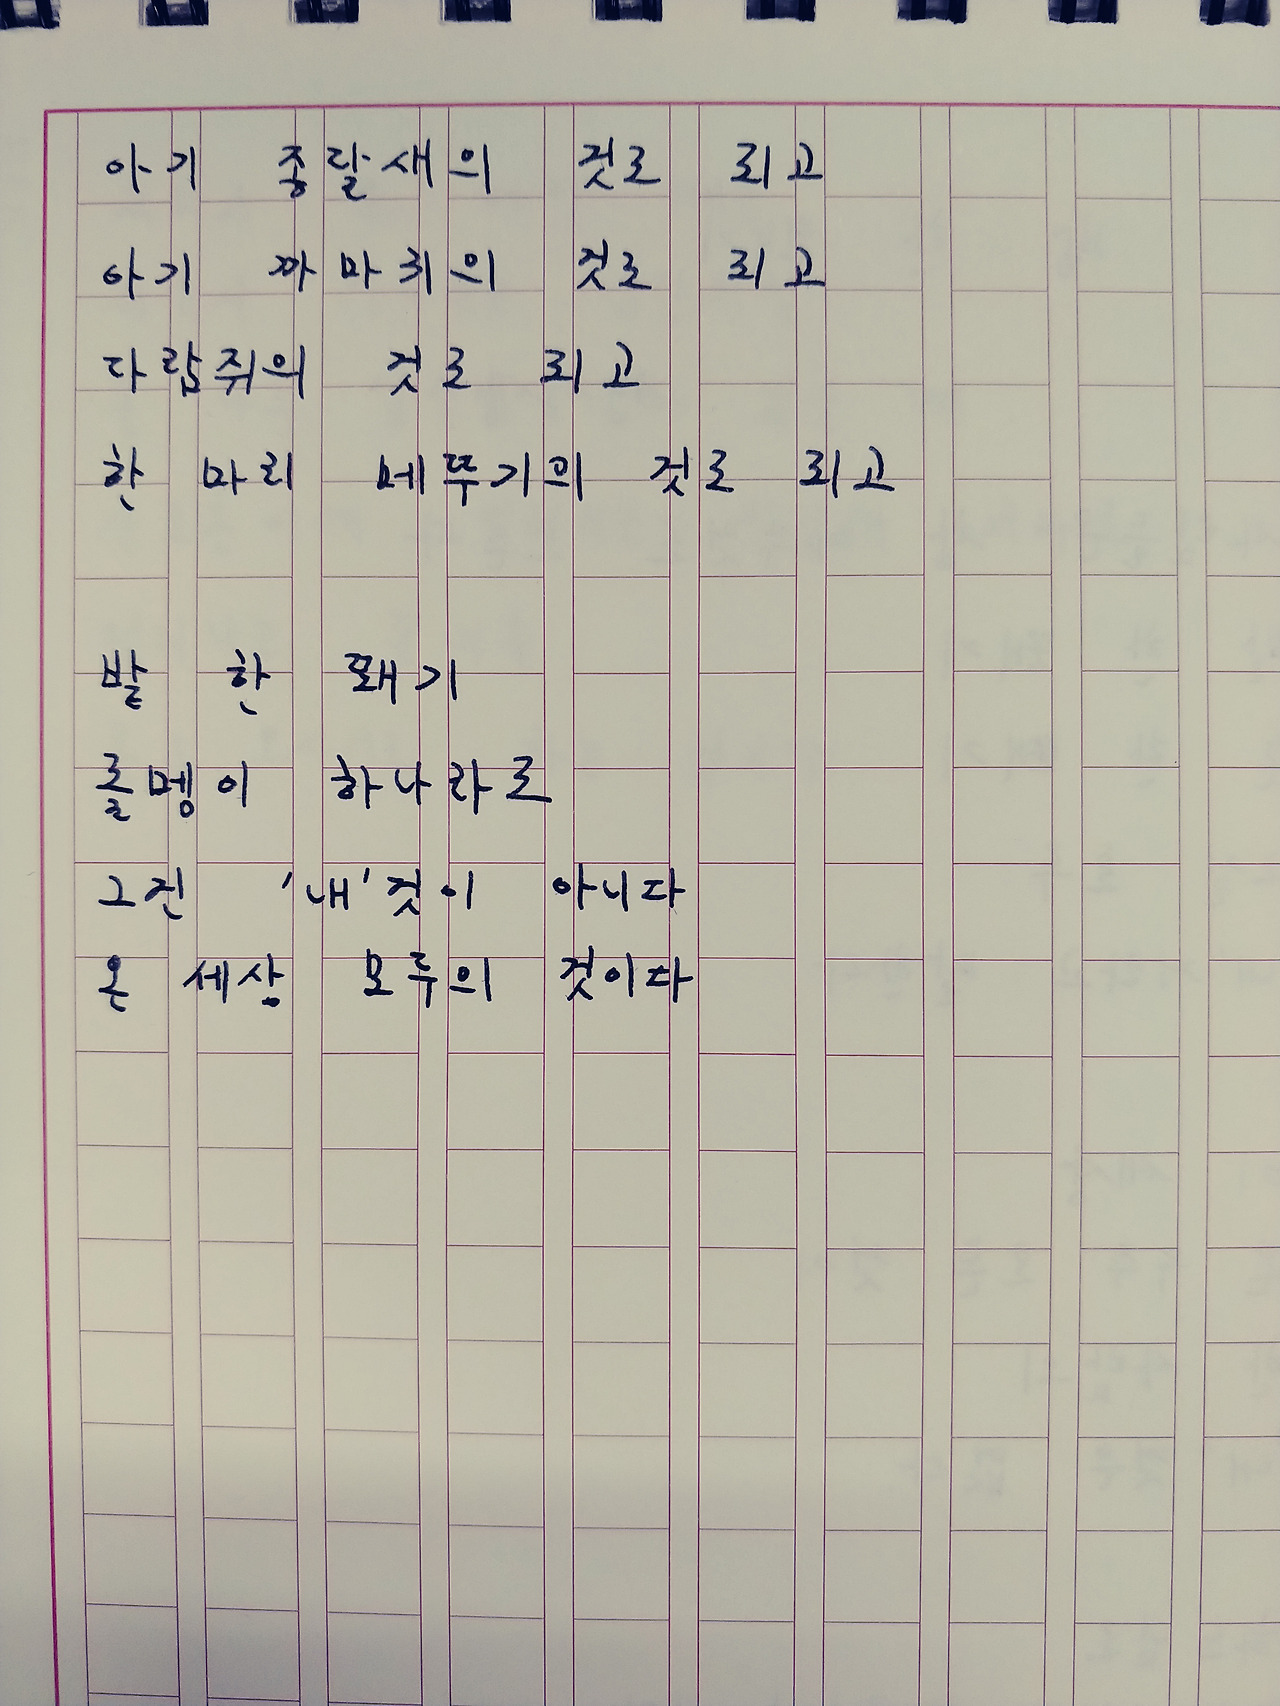 아기 종달새의 것도 되고
아기 까마귀의 것도 되고
다람쥐의 것도 되고
한 마리 메뚜기의 것도 되고
밭 한 뙈기
돌멩이 하나라도
그건 '내'것이 아니다
온 세상 모두의 것이다